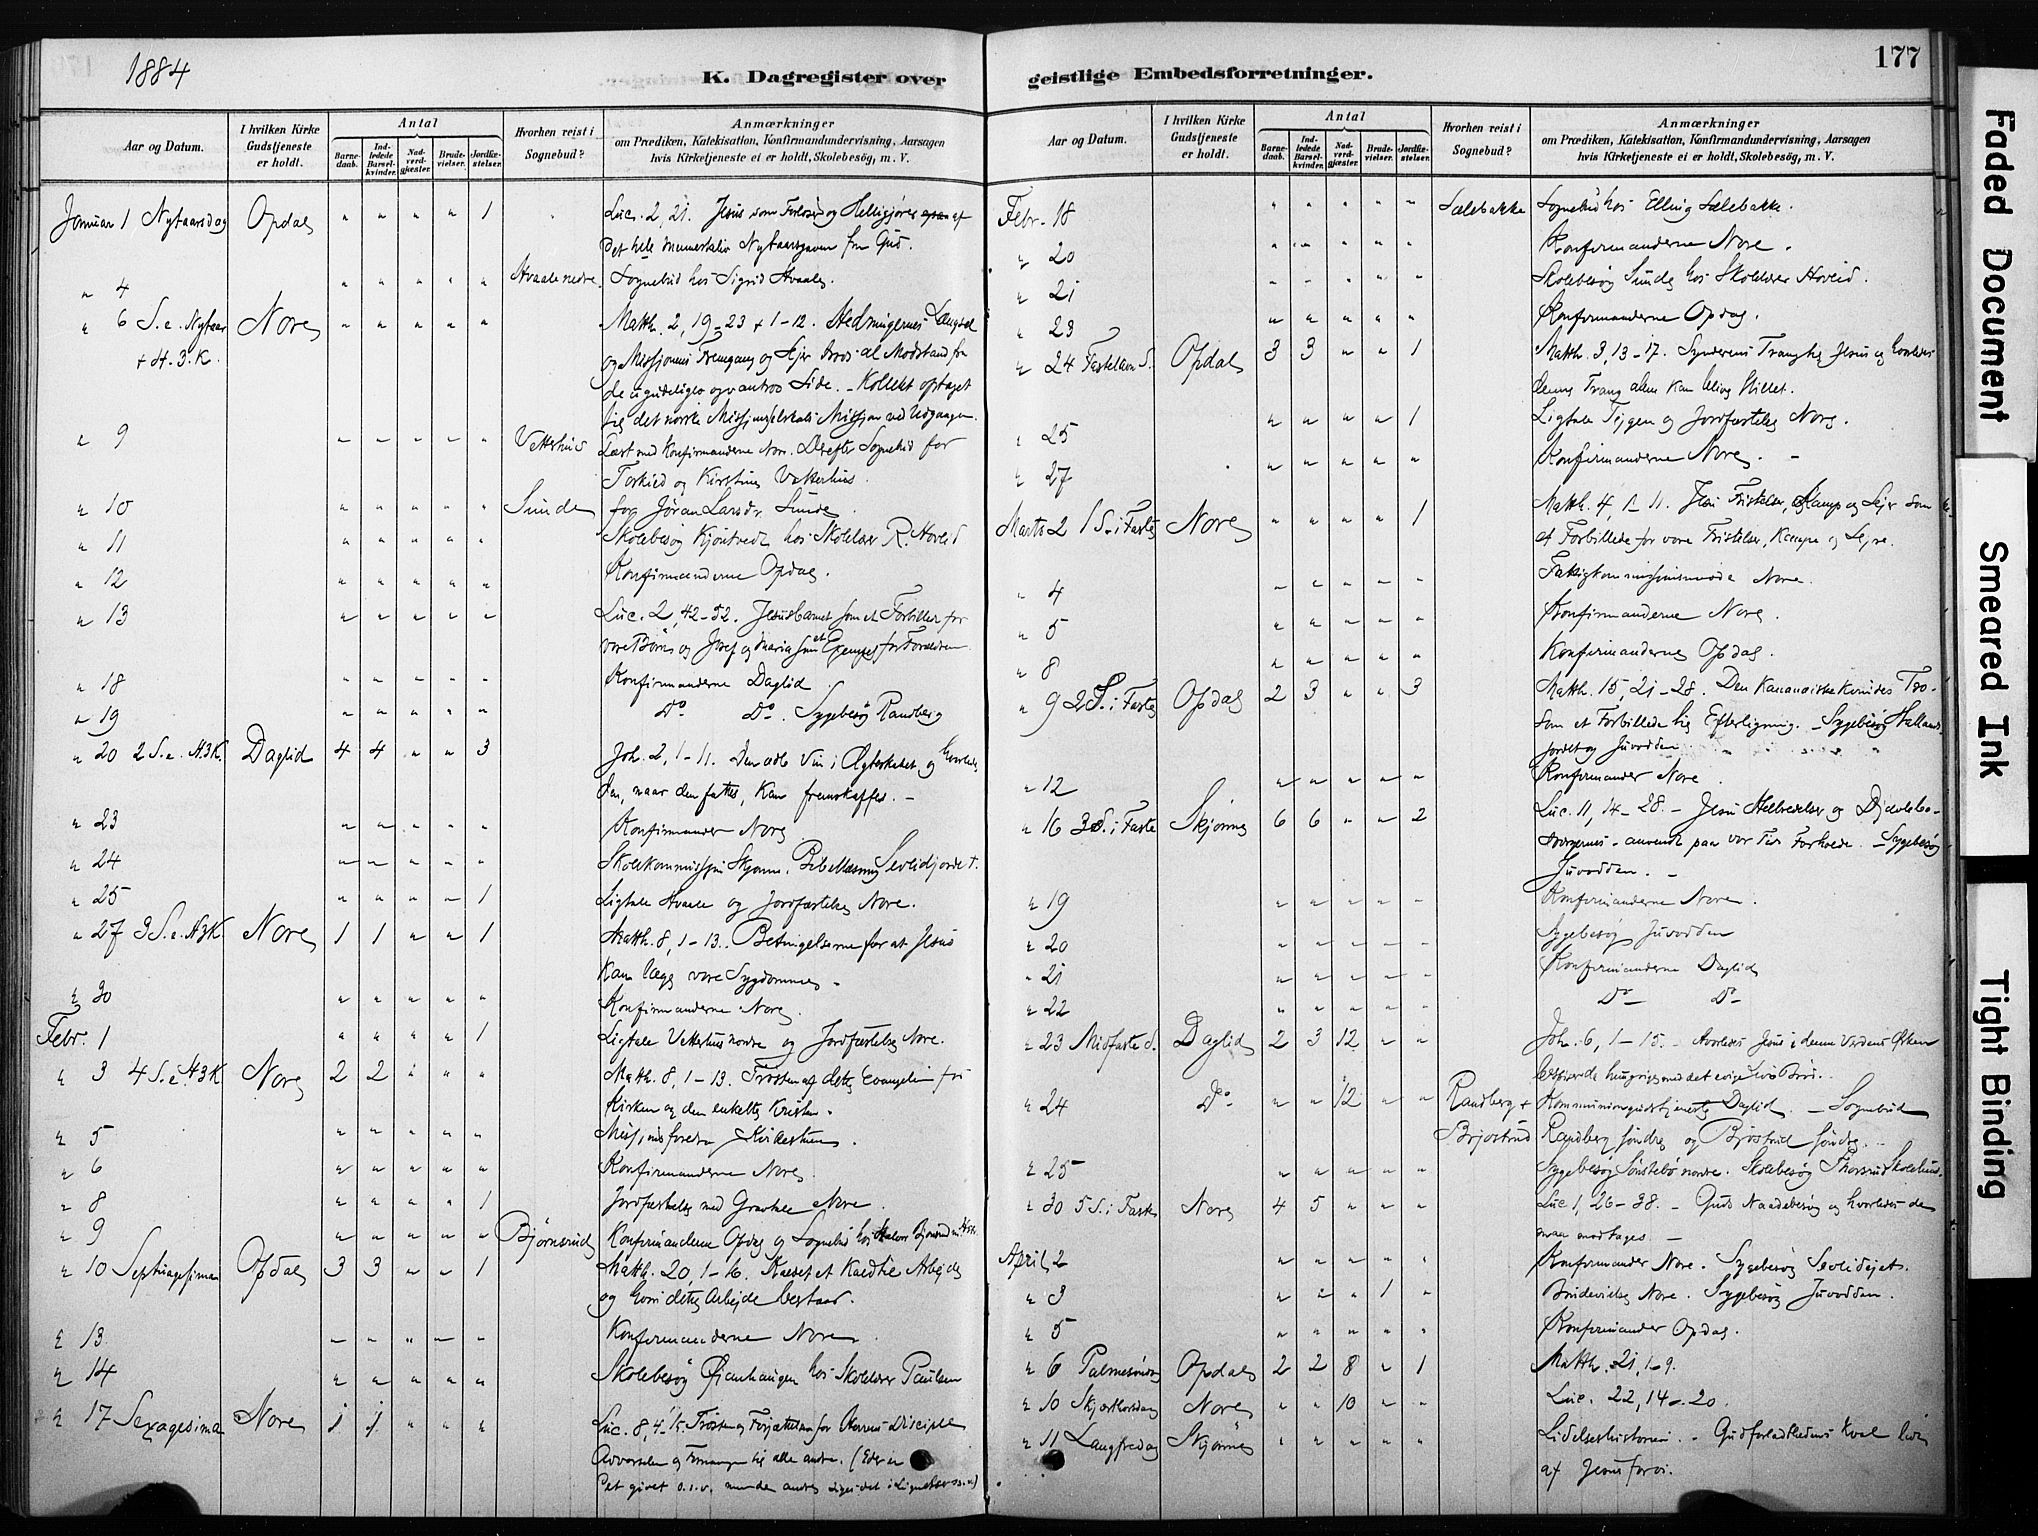 1884
K. Dagregister over
Aar og Datum. I hvilken Kirke Gudstjeneste er holdt. Antal Barnedaab. Indledede Barselkvinder. Nadverdgjæster. Brudevielser. Jordfæstelser. Hvorhen reist i Sognebud? Anmærkninger om Prædiken, Katekisation, Konfirmandundervisning, Aarsagen hvis Kirketjeneste ei er holdt, Skolebesøg, m. V.
Januar 1 Nytaarsdag Opdal " " " " 1 Luc. 2, 21. Jesus som Forløser og Helliggjører af
Det hele Nytaarsgaven fra Gud.
" 4 " " " " " Hvaale nedre Sognebud hos Sigrid Hvaale.
" 6 S. e. Nytaar Nore " " " " " Matth. 2, 19-23 + 1-12. Hedningernes Længsel
+ H. 3. K. og Missjonens Fremgang og Sejr trods al Modstand fra
de ugudeliges og vantros Side. - Kollekt optaget
til det norske Missjonsselskabs Missjon ved Udgangen.
" 9 " " " " " Vetterhus Læst med Konfirmanderne Nore. Derefter Sognebud for
og Kirstine Vetterhus.
" 10 " " " " " Sunde Jøran Larsdr. Sunde.
" 11 " " " " " Skolebesøg hos Skolelærer R. Hoveid
" 12 " " " " " Konfirmanderne Opdal.
" 13 " " " " " Luc. 2, 42-52. Jesusbarnet som et Forbillede for
vore Børn og Josef og Maria som et Exempel for Forældrene
" 18 " " " " " Konfirmanderne Daglid
" 19 " " " " " Do Do. Sygebesøg Randberg
" 20 2 S. e. H3K. Daglid 4 4 " " 3 Joh. 2, 1-11. Den ædle Vin i Ægteskabet og hvorledes
den, naar den fattes, kan fremskaffes. -
" 23 " " " " " Konfirmander Nore
" 24 " " " " " Skolekommissjon Skjønne. Bibellæsning Sevlidjordet.
" 25 " " " " 1 Ligtale Hvaale og Jordfæstelse Nore.
" 27 3 S. e. H3K Nore 1 1 " " 1 Matth. 8, 1-13. Betingelserne for at Jesus
kan læge vore Sygdomme.
" 30 " " " " " Konfirmanderne Nore.
Febr. 1 " " " " 1 Ligtale Vetterhus nordre og Jordfæstelse Nore.
" 3 4 S. e. H3K Nore 2 2 " " " Matth. 8, 1-13. Trøsten af dette Evangelium for
Kirken og den enkelte Kristen.
" 5 " " " " "
" 6 " " " " " Konfirmanderne Nore.
" 8 " " " " 1 Jordfæstelse med Gravtale Nore.
" 9 " " " " " Bjørnsrud Konfirmanderne Opdal og Sognebud hos
" 10 Septuagesima Opdal 3 3 " " 1 Matth. 20, 1-16. Kaldet et Kald til Arbejde
og hvori dette Arbejde bestaar.
" 13 " " " " " Konfirmanderne Nore.
" 14 " " " " " Skolebesøg hos Skolelærer Paulsen
" 17 Sexagesima Nore 1 1 " " " Luc. 8, 4-15. Trøsten og Forjættelsen for Herrens Disciple
Advarselen og til alle andre. (Eder er
det givet o.s.v. men de andre
177
geistlige Embedsforretninger.
Aar og Datum. I hvilken Kirke Gudstjeneste er holdt. Antal Barnedaab. Indledede Barselkvinder. Nadverdgjæster. Brudevielser. Jordfæstelser. Hvorhen reist i Sognebud? Anmærkninger om Prædiken, Katekisation, Konfirmandundervisning, Aarsagen hvis Kirketjeneste ei er holdt, Skolebesøg, m. V.
Febr. 18 " " " " " Sælebakke Sognebud hos Elling Sælebakke.
" 20 " " " " " Konfirmanderne Nore.
" 21 " " " " " Skolebesøg Sunde hos Skolelærer Hoveid.
" 23 " " " " " Konfirmanderne Opdal.
" 24 Fastelavn S. Opdal 3 3 " " 1 Matth. 3, 13-17. Synderens Trang til Jesus og hvorledes
denne Trang alene kan blive stillet.
" 25 " " " " 1 Ligtale og Jordfæstelse Nore.
" 27 " " " " " Konfirmanderne Nore.
Marts 2 1 S. i Faste Nore " " " " 1 Matth. 4, 1-11. Jesu Fristelser, Kamp og Sejr som
et Forbillede for vore Fristelser, Kampe og Sejre.
" 4 " " " " " Fattigkommissjonsmøde Nore.
" 5 " " " " " Konfirmanderne Nore.
" 8 " " " " " Konfirmanderne Opdal.
" 9 2 S. i Faste Opdal 2 3 " " 3 Matth. 15, 21-28. Den kananæiske Kvindes Tro
som et Forbillede til Efterligning. - Sygebesøg Halland
jordet og Juvodden.
" 12 " " " " " Konfirmander Nore.
" 16 3 S. i Faste Skjønne 6 6 " " 2 Luc. 11, 14-28. - Jesu Helbredelser og Djævlebe-
sværgernes - anvendt paa vor Tids Forhold. - Sygebesøg
Juvodden. -
" 19 " " " " " Konfirmanderne Nore.
" 20 " " " " " Sygebesøg Juvodden
" 21 " " " " " Konfirmanderne Daglid
" 22 " " " " " Do Do
" 23 Midfaste S. Daglid 2 3 12 " " Joh. 6, 1-15. - Hvorledes Jesus i denne Verdens Ørken
bespiser de hungrige med det evige Livs Brød.
" 24 Do " " 12 " " Randberg + Kommunionsgudstjeneste Daglid. - Sognebud
Brjøstrud Randberg søndre og Brjøstrud søndre.
" 25 " " " " " Sygebesøg Sønstebø nordre. Skolebesøg Thorsrud Skolehus.
" 30 5 S. i Faste Nore 4 5 " " " Luc. 1, 26-38. - Guds Naadebesøg og hvorledes de
maa modtages. -
April 2 " " " " " Konfirmander Nore. Sygebesøg
" 3 " " " 1 " Brudevielse Nore. Sygebesøg Juvodden.
" 5 " " " " " Konfirmander Opdal.
" 6 Palmesøndag Opdal 2 2 8 " 1 Matth. 21, 1-9.
" 10 Skjærthorsdag Nore " " 10 " " Luc. 22, 14-20.
" 11 Langfredag Skjønne " " " " " Lidelseshistorien. - Gudforladthedens Kval
af Jesus for os.
Faded Document
Smeared Ink
Tight Binding